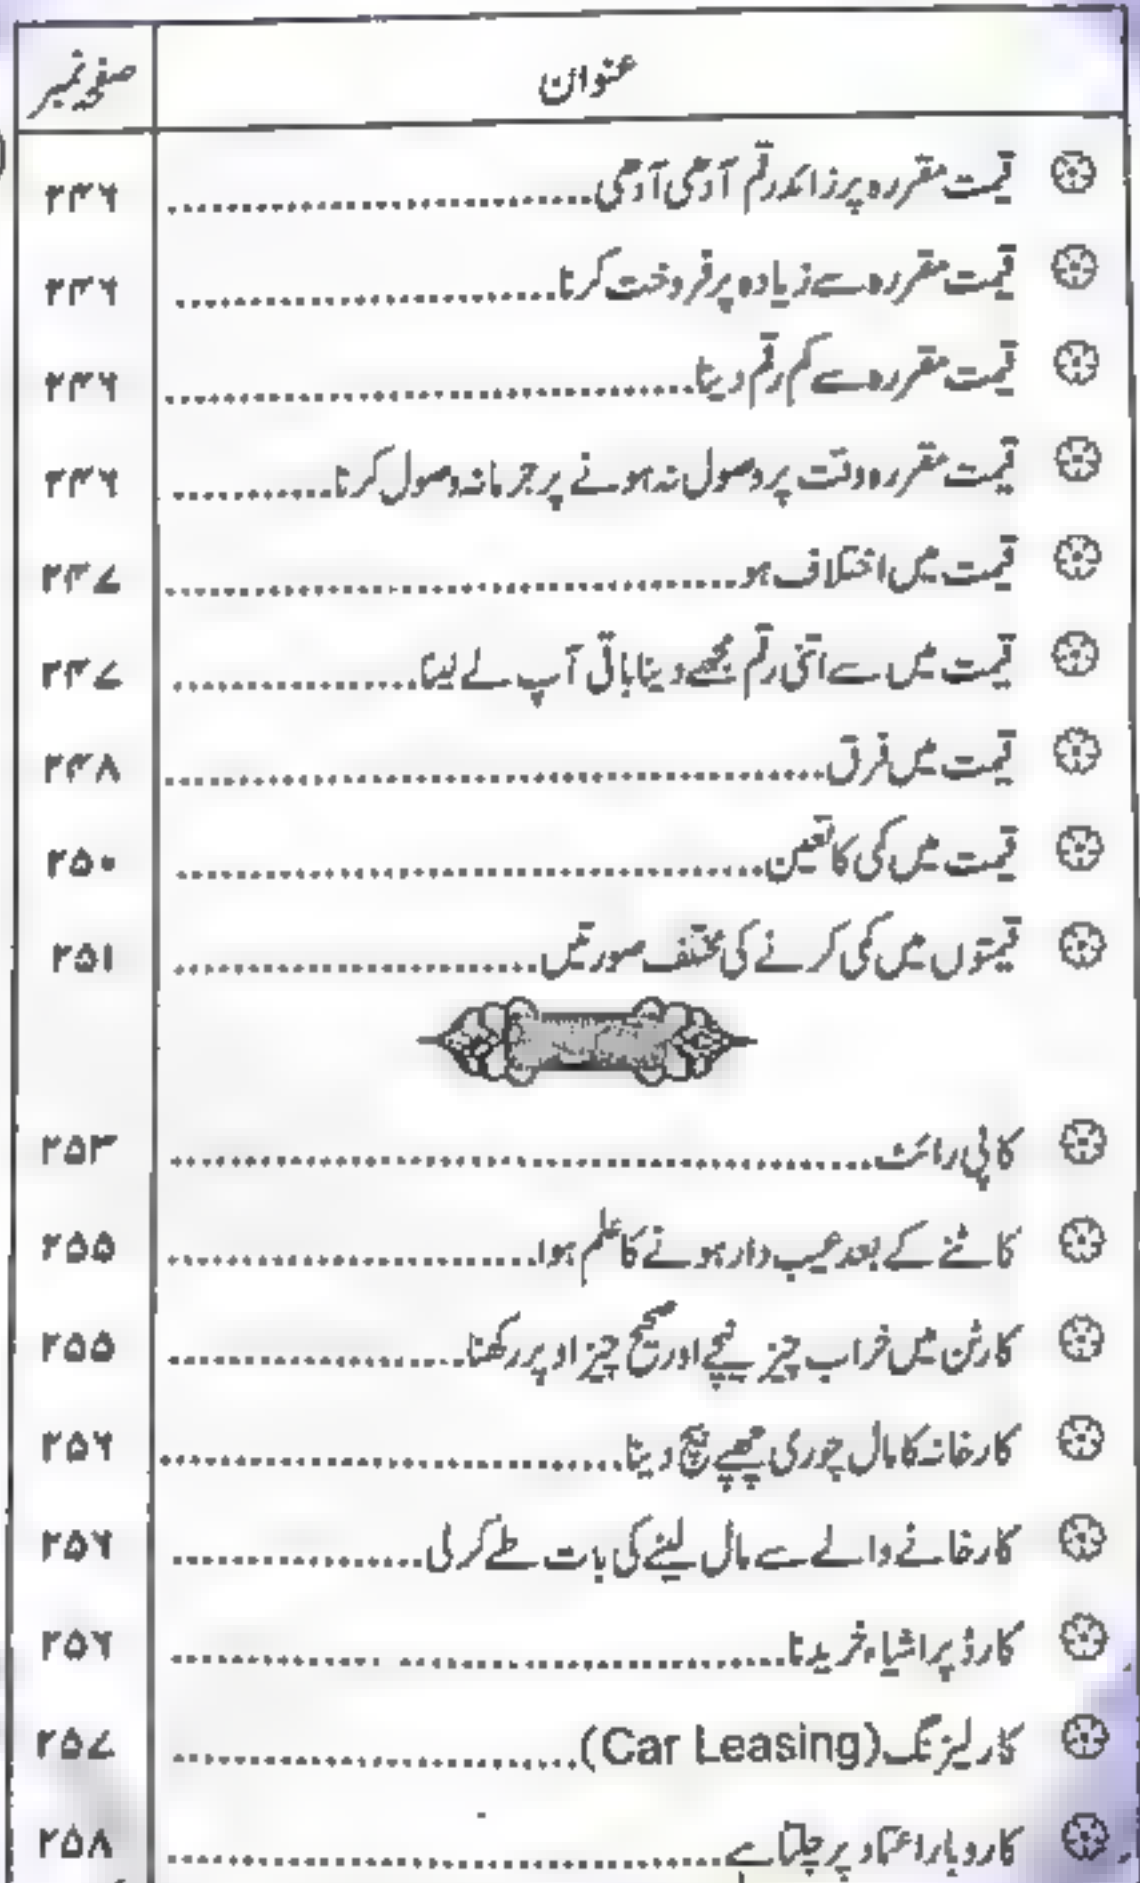 عنوان صفحہ نمبر
قیمت مقررہ پر زائد رقم آدھی آدھی ۲۴۶
قیمت مقررہ سے زیادہ پر فروخت کرنا ۲۴۶
قیمت مقررہ سے کم رقم دینا ۲۴۶
قیمت مقررہ وقت پر وصول نہ ہونے پر جرمانہ وصول کرنا ۲۴۶
قیمت میں اختلاف ہو ۲۴۷
قیمت میں سے اتنی رقم مجھے دینا باقی آپ لے لینا ۲۴۷
قیمت میں فرق ۲۴۸
قیمت میں کمی کا تعین ۲۵۰
قیمتوں میں کمی کرنے کی مختلف صورتیں ۲۵۱
کاپی رائٹ ۲۵۳
کاٹنے کے بعد عیب دار ہونے کا علم ہوا ۲۵۵
کارٹن میں خراب چیز نیچے اور صحیح چیز اوپر رکھنا ۲۵۵
کارخانہ کا مال چوری چھپے بیچ دینا ۲۵۶
کارخانے والے سے مال لینے کی بات طے کر لی ۲۵۶
کارڈ پر اشیاء خریدنا ۲۵۶
کار لیزنگ (Car Leasing) ۲۵۷
کاروبار اعتماد پر چلتا ہے ۲۵۸